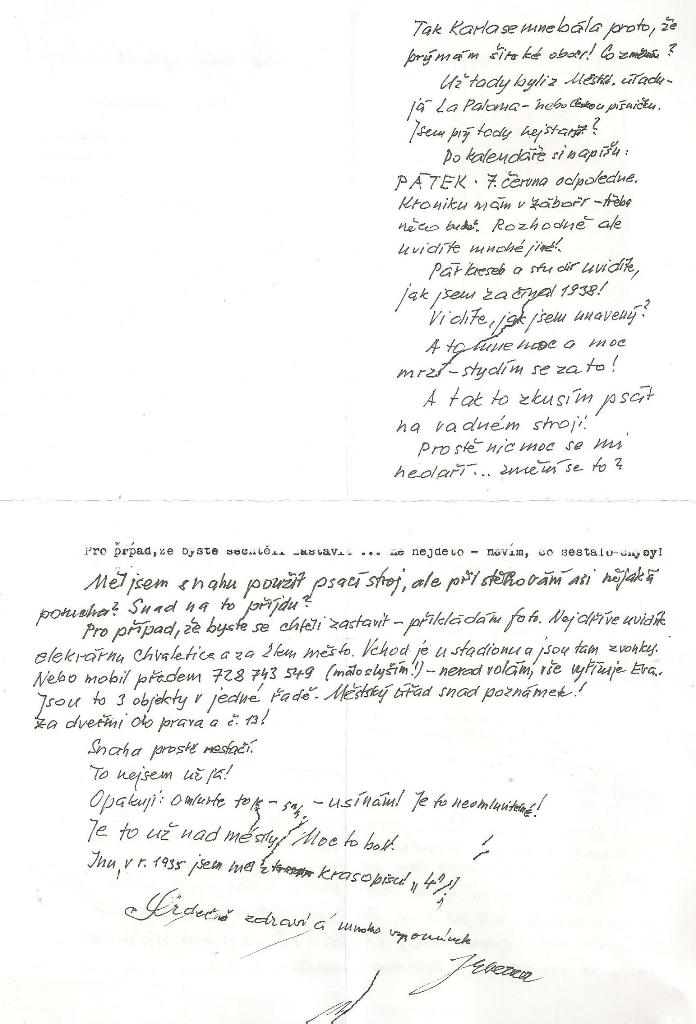 Tak Karla se mne bála proto, že
prý mám široké obočí! Co změna?
Už tady byli z Městs. úřadu-
já La Paloma - nebo českou písničku.
Jsem prý tady nejstarší?
Do kalendáře si napíšu:
PÁTEK. 7. června odpoledne.
Kroniku mám v Záboří - třeba
něco bude. Rozhodně ale
uvidíte mnohé jiné!
Pár kreseb a studií uvidíte,
jak jsem začínal 1938!
Vidíte, jak jsem unavený?
A to mne moc a moc
mrzí - stydím se za to!
A tak to zkusím psát
na vadném stroji!
Prostě nic moc se mi
nedaří... změní se to?
Pro případ, že byste sechtěli zastavit ... ne nejdeto - nevím, co sestalo-chyby!
Měl jsem snahu použít psací stroj, ale při stěhování asi nějaká
porucha? Snad na to přijdu?
Pro případ, že byste se chtěli zastavit - přikládám foto. Nejdříve uvidíte
elekrárnu Chvaletice a za 2km město. Vchod je u stadionu a jsou tam zvonky.
Nebo mobil předem 728 743 549 (málo slyším!) - nerad volám, vše vyřizuje Eva.
Jsou to 3 objekty v jedné řadě. Městský úřad snad poznáme!
Za dveřmi do prava a č. 13!
Snaha prostě nestačí.
To nejsem už já!
Opakuji: omluvte to - - usínám! Je to neomluvitelné!
Je to už nad mé síly! Moc to bolí!
Inu, v r. 1935 jsem měl z krasopisu „4"!
Srdečně zdraví a mnoho vzpomínek